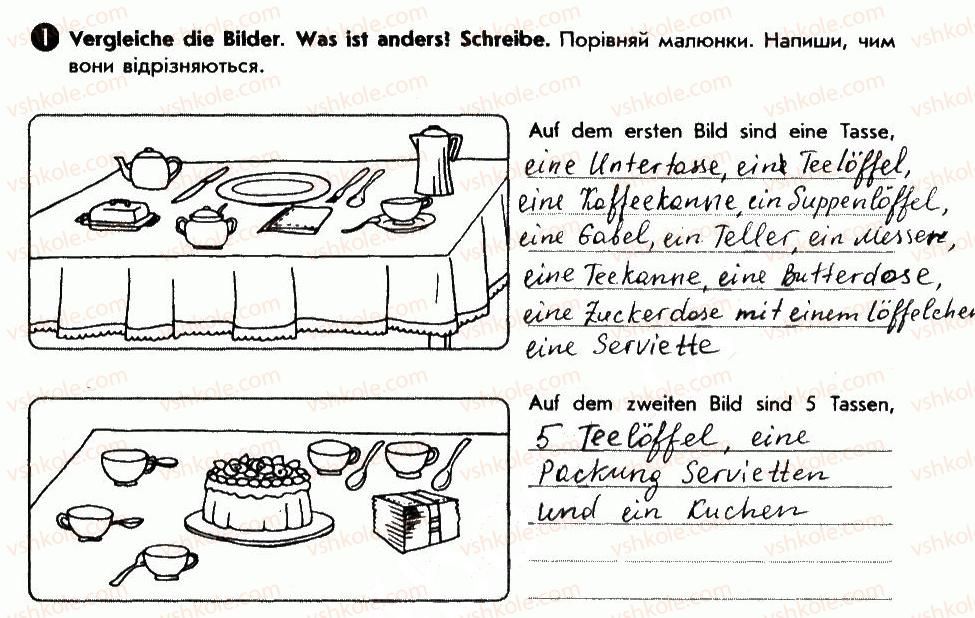 1 Vergleiche die Bilder. Was ist anders? Schreibe. Порівняй малюнки. Напиши, чим
вони відрізняються.
Auf dem ersten Bild sind eine Tasse,
eine Untertasse, ein Teelöffel,
eine Kaffeekanne, ein Suppenlöffel,
eine Gabel, ein Teller, ein Messer,
eine Teekanne, eine Butterdose,
eine Zuckerdose mit einem löffelchen
eine Serviette
Auf dem zweiten Bild sind 5 Tassen,
5 Teelöffel, eine
Packung Servietten
und ein Kuchen
vshkole.com